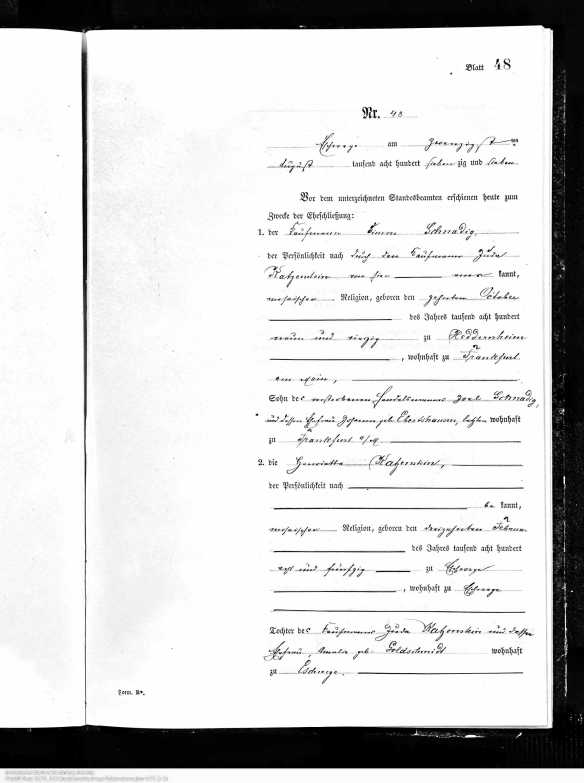 Blatt 48
Nr. 48
Eschwege am zwanzigsten
August tausend acht hundert sieben zig und sieben
Vor dem unterzeichneten Standesbeamten erschienen heute zum
Zwecke der Eheschließung:
1. der Kaufmann Schnadig,
der Persönlichkeit nach durch den Kaufmann Juda
Katzenstein kannt,
mosaischer Religion, geboren den zehnten October
des Jahres tausend acht hundert
neun und vierzig zu Heddernheim
, wohnhaft zu Frankfurt
am Main,
Sohn des verstorbenen Handelsmanns Schnadig,
und dessen Ehefrau Johanna geb. letztere wohnhaft
zu Frankfurt a/M
2. die Henriette Katzenstein,
der Persönlichkeit nach
be kannt,
mosaischer Religion, geboren den dreizehnten Februar
des Jahres tausend acht hundert
acht und fünfzig zu Eschwege
, wohnhaft zu Eschwege
Tochter des Kaufmanns Juda Katzenstein und dessen
Ehefrau, Amalie geb. Goldschmidt wohnhaft
zu Eschwege.
Form. B.